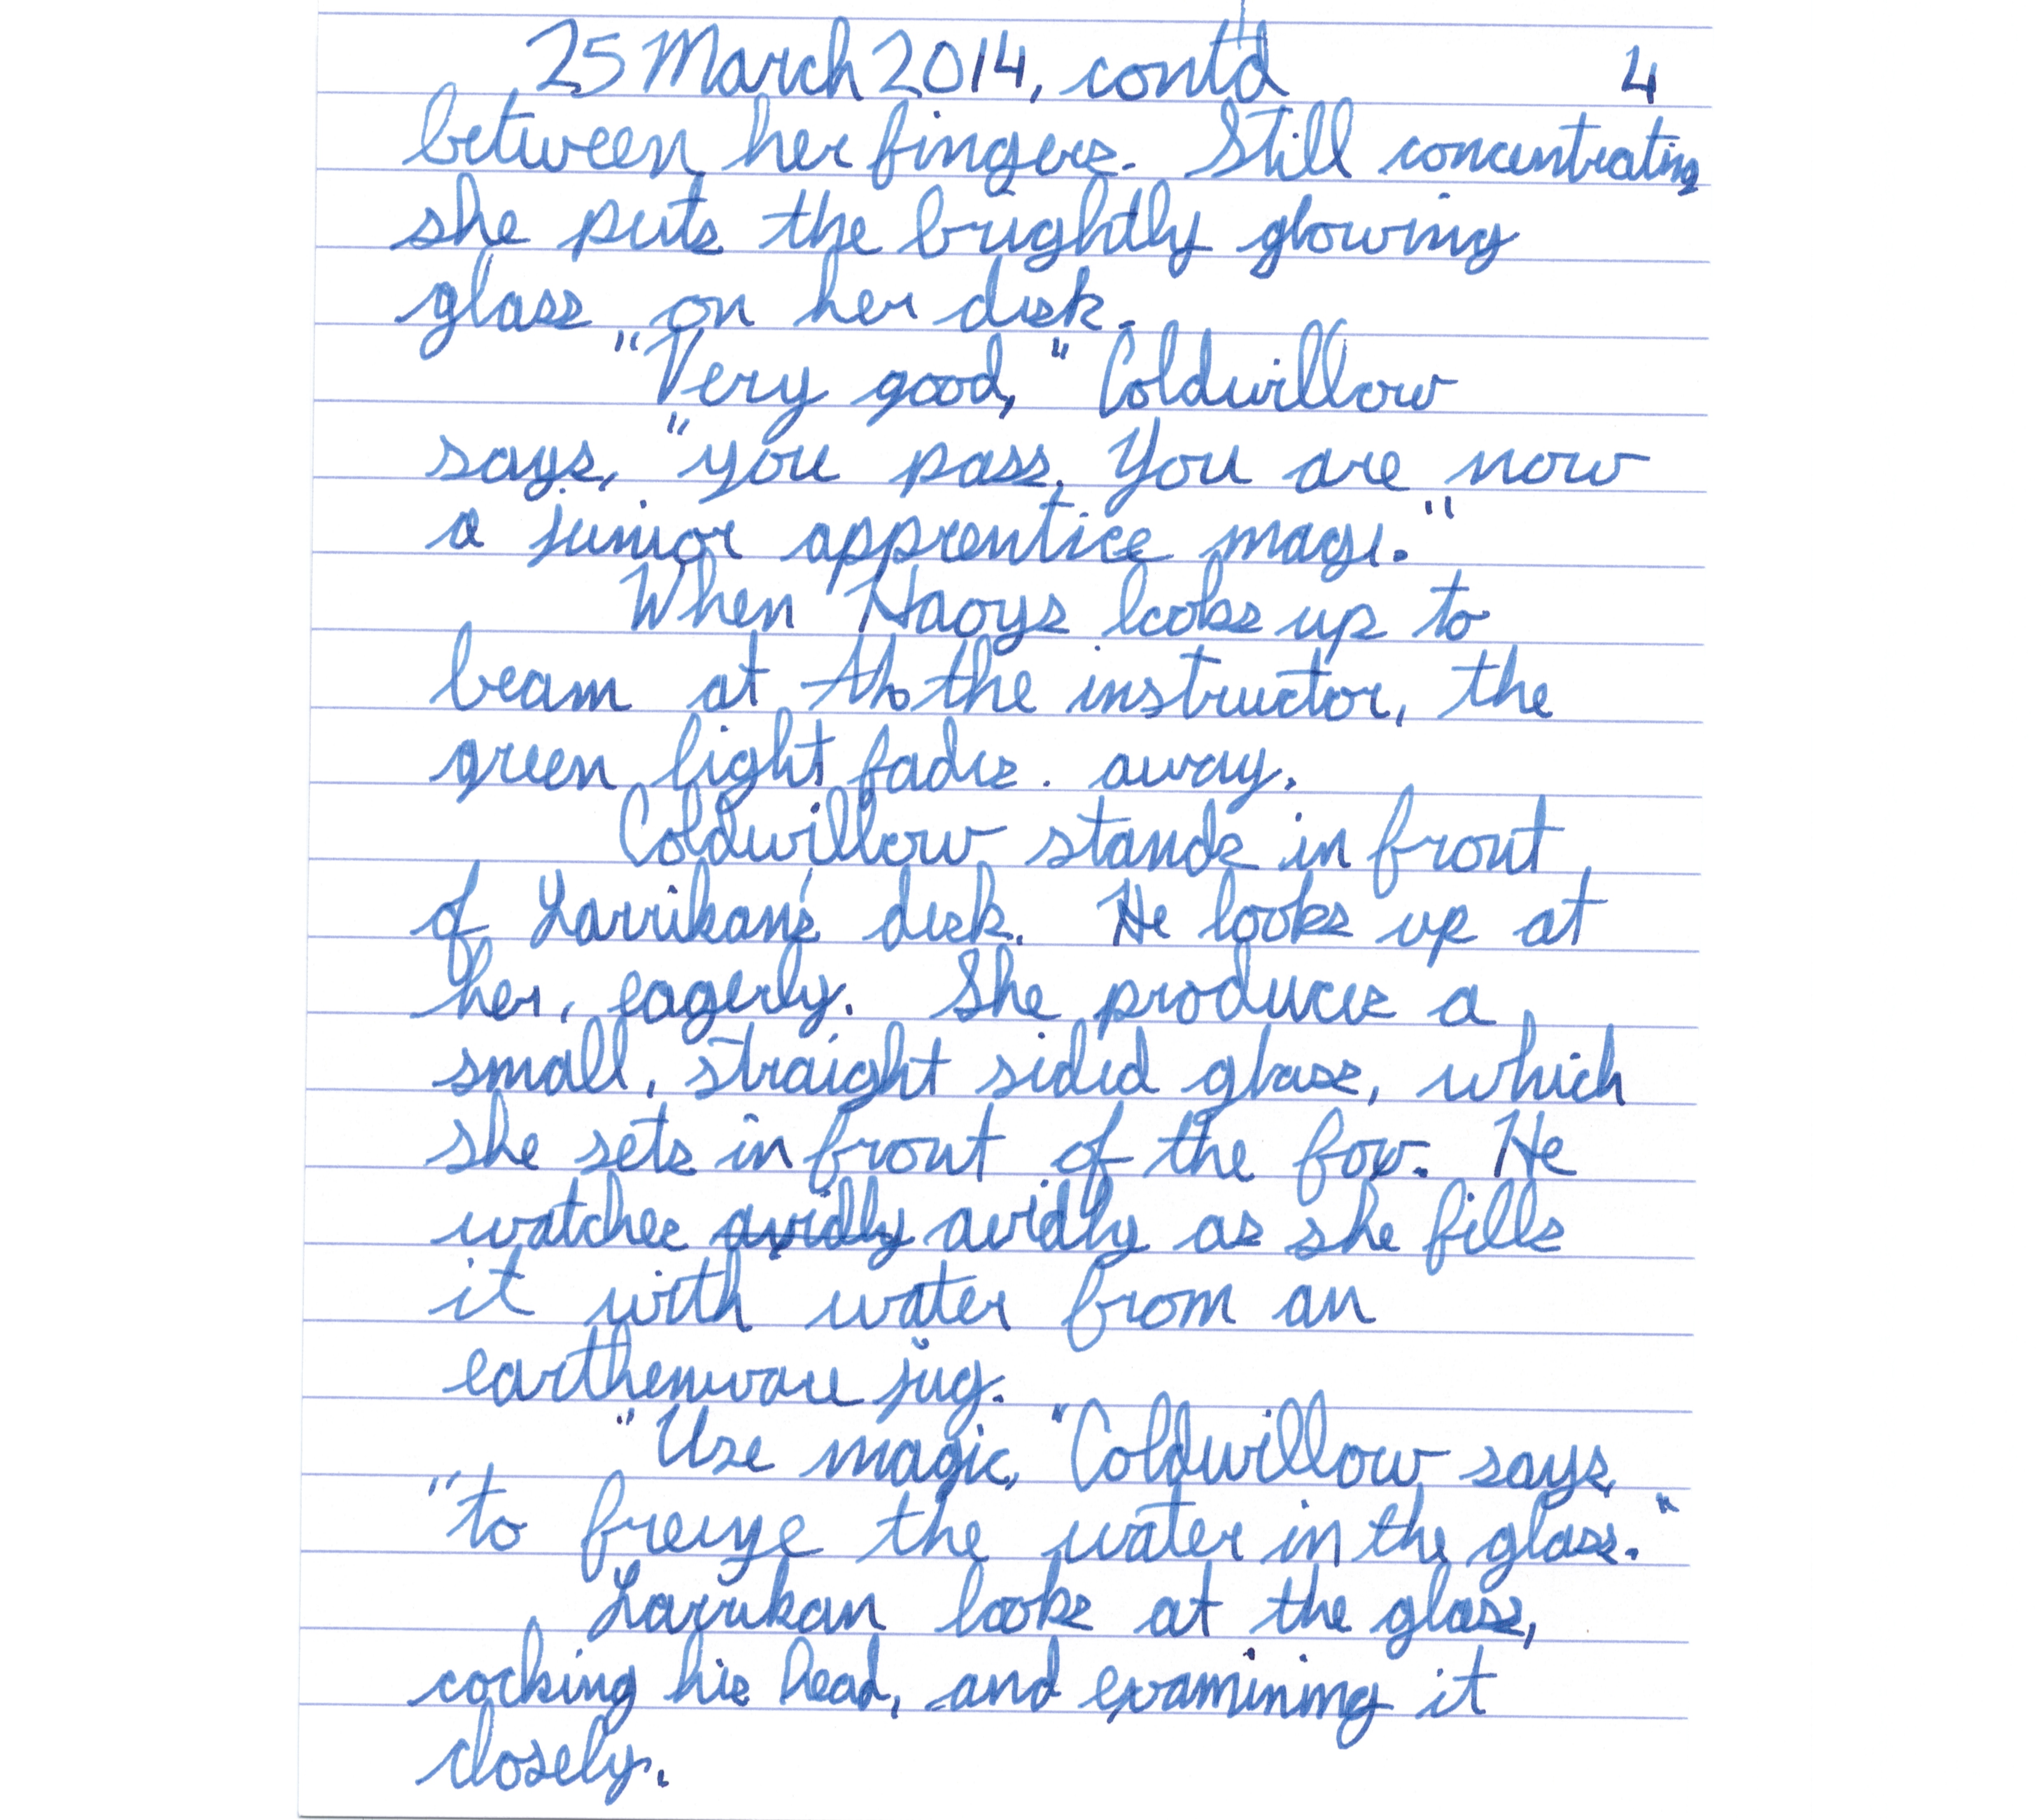 25 March 2014, cont'd 4
between her fingers. Still concentrating
she puts the brightly glowing
glass on her desk.
"Very good," Coldwillow
says, "you pass. You are now
a junior apprentice magi."
When Haoys looks up to
beam at th the instructor, the
green light fades. away.
Coldwillow stands in front
of Larrikan's desk. He looks up at
her, eagerly. She produces a
small, straight sided glass, which
she sets in front of the fox. He
watches avidly avidly as she fills
it with water from an
earthenware jug.
"Use magic, "Coldwillow says,
"to freeze the water in the glass."
Larrikan looks at the glass,
cocking his head, and examining it
closely.